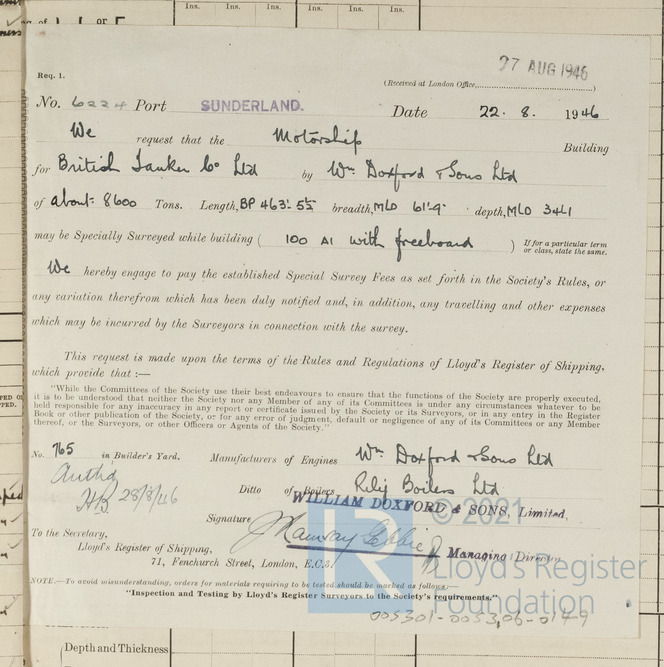 Ins. Ins. Ins. Ins.
Req. 1.
27 AUG 1946
(Received at London Office
No. 6224 Port SUNDERLAND. Date 22. 8. 1946
We request that the Motorship Building
for British Tanker Co Ltd by Wm. Doxford & Sons Ltd
of about 8600 Tons. Length, BP 463'- 5½ breadth, MLD 61'-9" depth, MLD 34'1
may be Specially Surveyed while building ( 100 A1 with freeboard ) If for a particular term or class, state the same.
We hereby engage to pay the established Special Survey Fees as set forth in the Society's Rules, or
any variation therefrom which has been duly notified and, in addition, any travelling and other expenses
which may be incurred by the Surveyors in connection with the survey.
This request is made upon the terms of the Rules and Regulations of Lloyd's Register of Shipping,
which provide that :—
"While the Committees of the Society use their best endeavours to ensure that the functions of the Society are properly executed,
it is to be understood that neither the Society nor any Member of any of its Committees is under any circumstances whatever to be
held responsible for any inaccuracy in any report or certificate issued by the Society or its Surveyors, or in any entry in the Register
Book or other publication of the Society, or for any error of judgment, default or negligence of any of its Committees or any Member
thereof, or the Surveyors, or other Officers or Agents of the Society."
No. 765 in Builder's Yard. Manufacturers of Engines Wm. Doxford & Sons Ltd
28/8/46
Ditto of Boilers Boilers Ltd
WILLIAM DOXFORD & SONS, Limited.
© 2021
Signature
Managing Director
To the Secretary,
Lloyd's Register of Shipping,
71, Fenchurch Street, London, E.C.3.
Lloyd's Register
Foundation
NOTE.—To avoid misunderstanding, orders for materials requiring to be tested should be marked as follows:—
"Inspection and Testing by Lloyd's Register Surveyors to the Society's requirements."
005301-005306-0149
Depth and Thickness